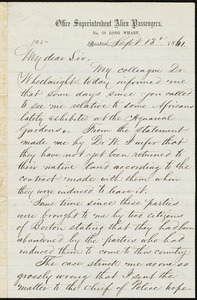 Office Superintendent Alien Passengers,
No. 10 Long Wharf,
Boston, Sept 13th 1861.
My dear Sir:
My colleague Dr.
Wheelwright today informed me
that some days since you called
to see me relative to some Africans
lately exhibited at the Aquarial
Gardens. From the statement
made me by Dr. W. I infer that
they have not yet been returned to
their native land according to the
contract made with them when
they were induced to leave it.
Some time since these parties
were brought to me by two citizens
of Boston stating that they had been
abandoned by the parties who had
induced them to come to this country.
The case struck me as one so
grossly wrong that I sent the
matter to the Chief of Police hope